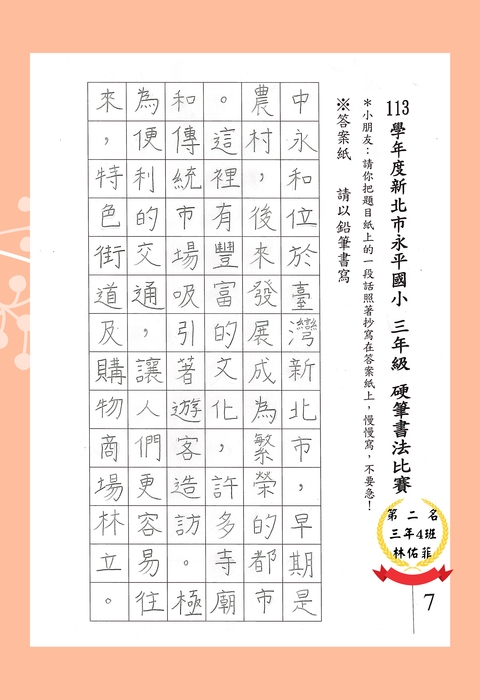 113學年度新北市永平國小 三年級 硬筆書法比賽
＊小朋友：請你把題目紙上的一段話照著抄寫在答案紙上，慢慢寫，不要急！
※答案紙 請以鉛筆書寫
中永和位於臺灣新北市，早期是
農村，後來發展成為繁榮的都市
。這裡有豐富的文化，許多寺廟
和傳統市場吸引著遊客造訪。極
為便利的交通，讓人們更容易往
來，特色街道及購物商場林立。
第二名
三年4班
林佑菲
7